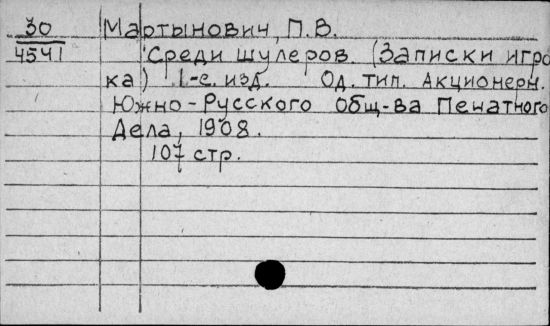 30 Мартынович, П.В.
4541 Среди шулеров. (Записки игро
ка) 1-е. изд. Од. тип. Акционерн.
Южно-Русского Общ-ва Печатного
Дела, 1908.
107 стр.